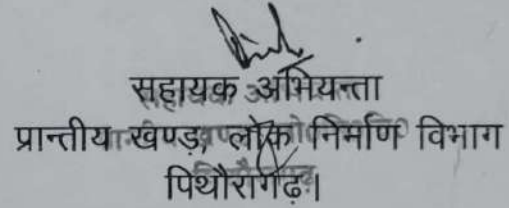 सहायक अभियन्ता
प्रान्तीय खण्ड, लोक निर्माण विभाग
पिथौरागढ़।